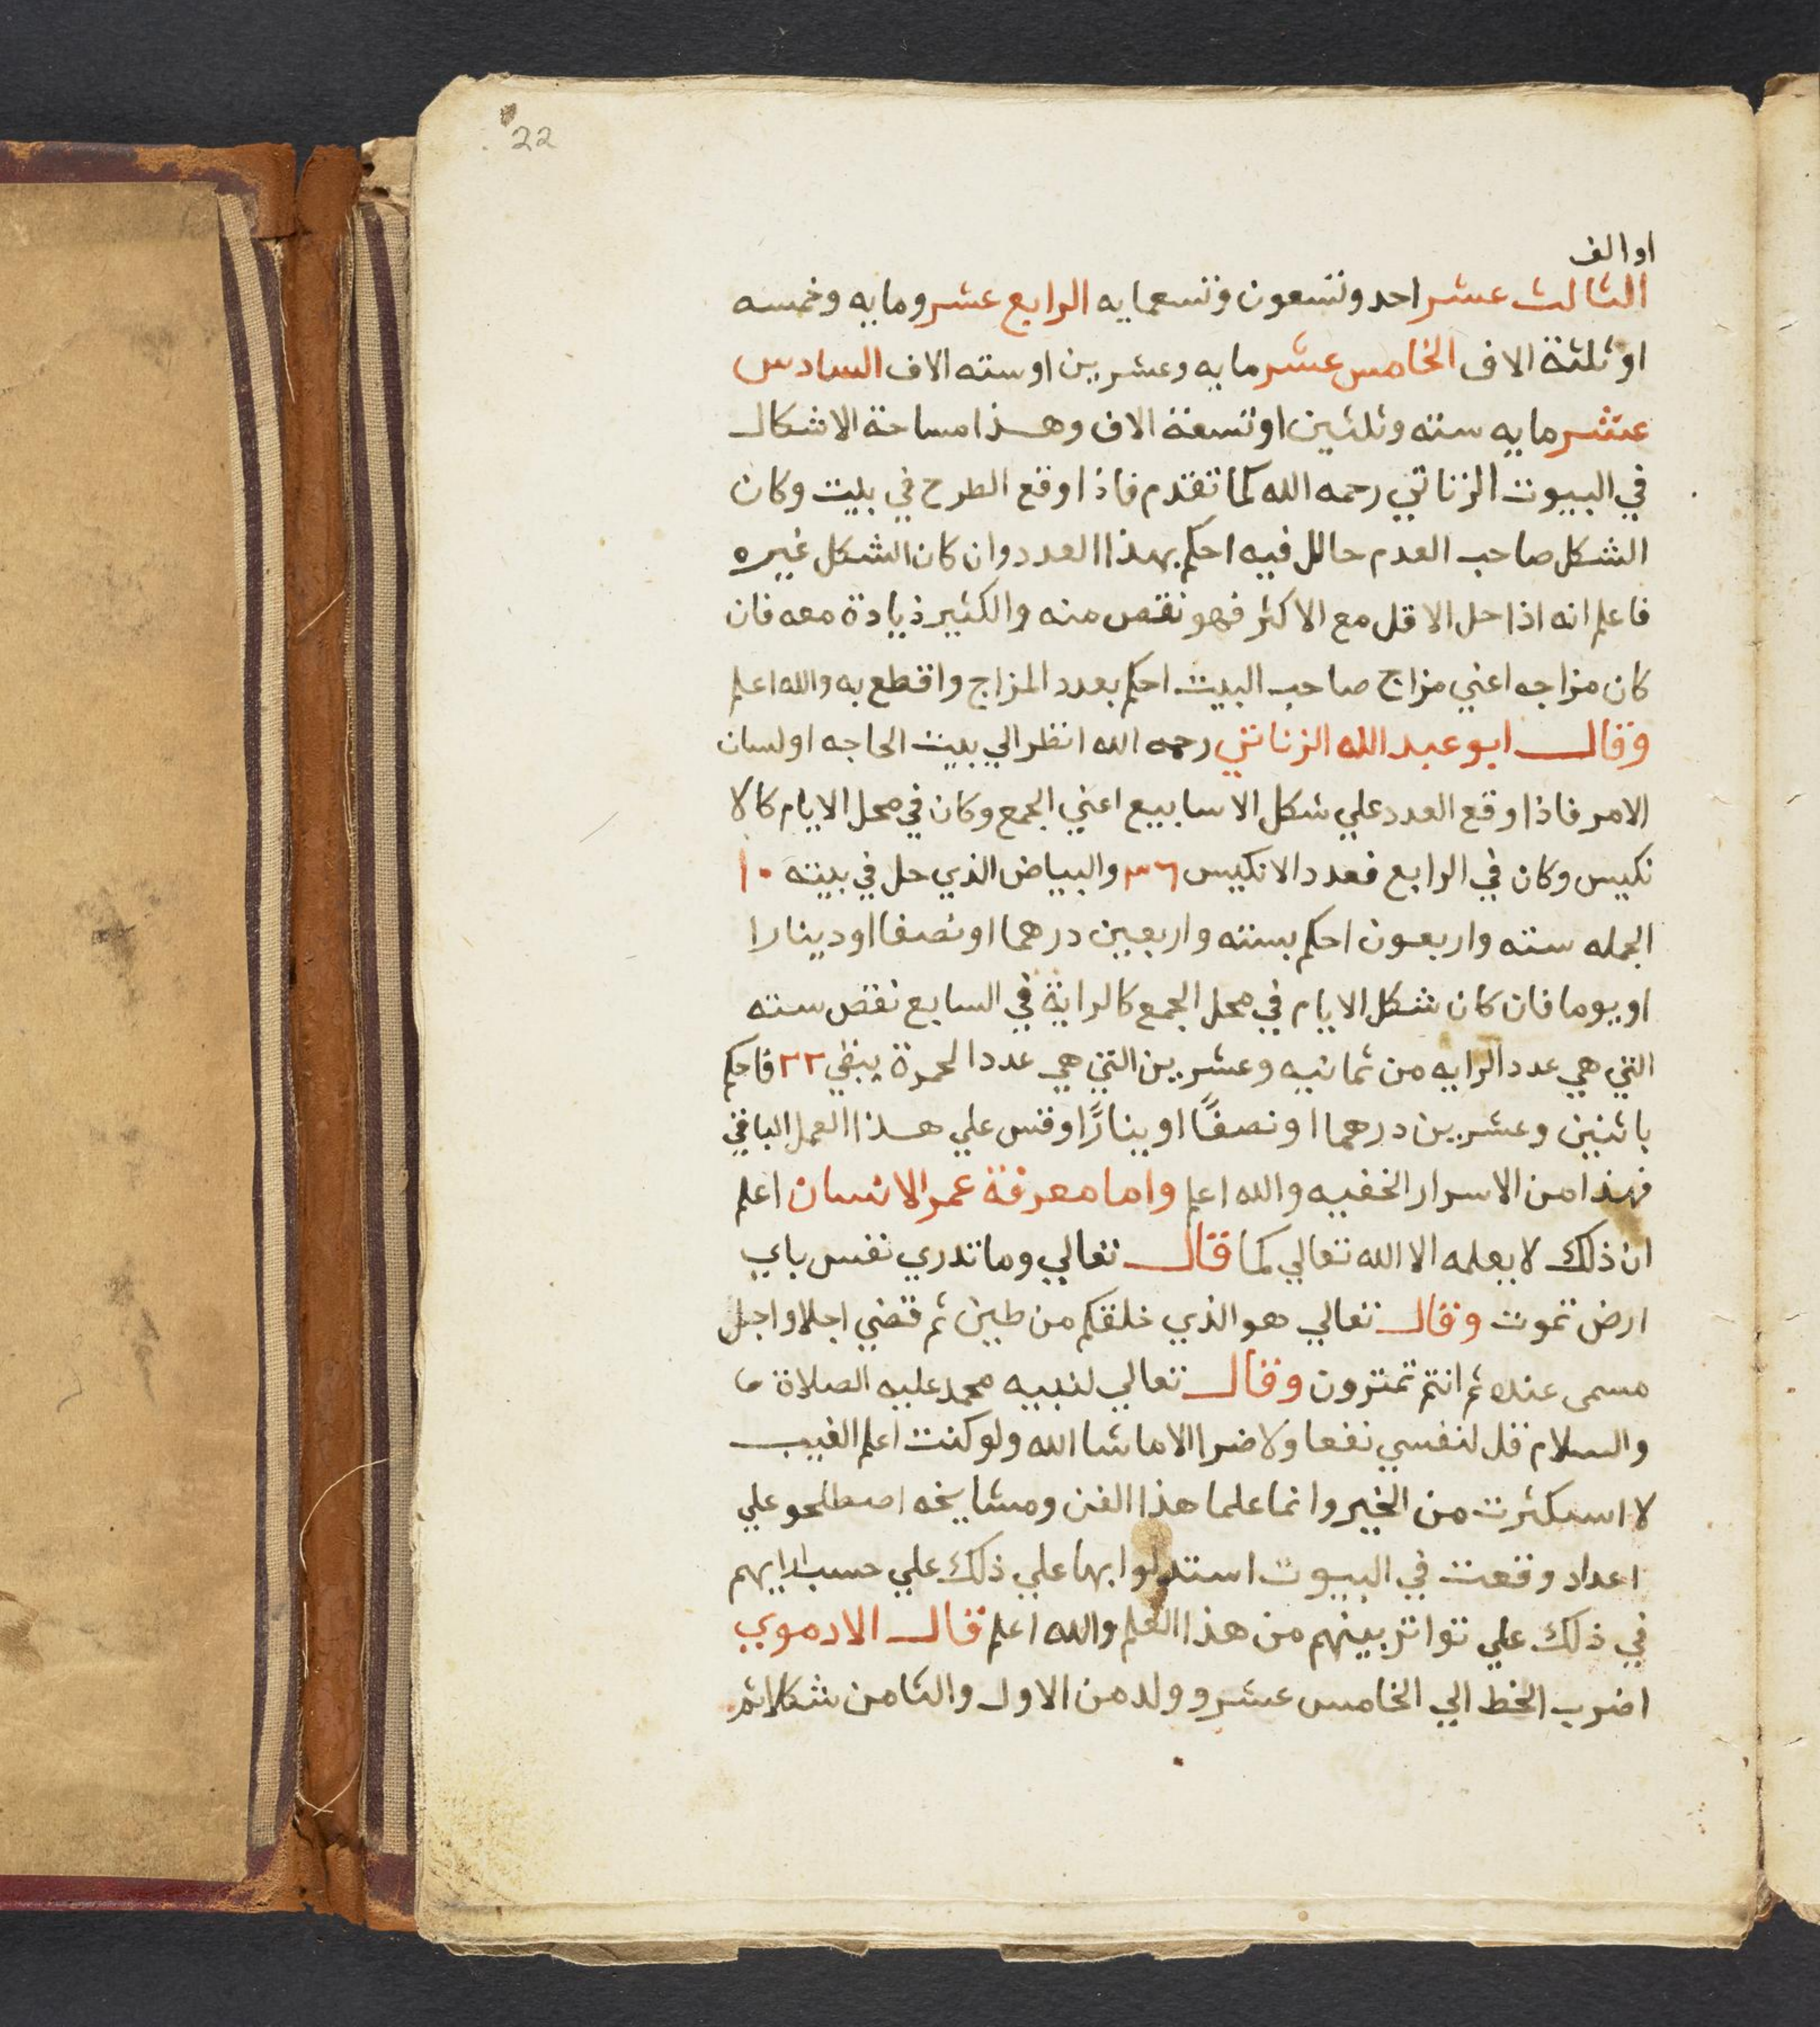 22
او الف
الثالث عشر احد وتسعون وتسعمايه الرابع عشر ومايه وخمسه
او ثلثة الاف الخامس عشر مايه وعشرين او سته الاف السادس
عشر مايه سته وثلثين او تسعة الاف وهذا مساحة الاشكال
في البيوت الزناتي رحمه الله كما تقدم فاذا وقع الطرح في بيت وكان
الشكل صاحب العدم حالل فيه احكم بهذا العدد وان كان الشكل غيره
فاعلم انه اذا حل الاقل مع الاكثر فهو نقص منه والكثير ذيادة معه فان
كان مزاجه اعني مزاج صاحب البيت احكم بعدد المزاج واقطع به والله اعلم
وقال ابو عبد الله الزناتي رحمه الله انظر الي بيت الحاجه او لسان
الامر فاذا وقع العدد علي شكل الاسابيع اعني الجمع وكان في محل الايام كالا
نكيس وكان في الرابع فعدد الانكيس ٣٦ والبياض الذي حل في بيته ١٠
الجمله سته واربعون احكم بسته واربعين درهما او نصفا او دينارا
او يوما فان كان شكل الايام في محل الجمع كالراية في السابع نقص سته
التي هي عدد الرايه من ثمانيه وعشرين التي هي عدد الحمرة يبقي ٢٢ فاحكم
باثنين وعشرين درهما او نصفًا او ينارًا وقس علي هذا العمل الباقي
فهذا من الاسرار الخفيه والله اعلم واما معرفة عمر الانسان اعلم
ان ذلك لا يعلمه الا الله تعالي كما قال تعالي وما تدري نفس باي
ارض تموت وقال تعالي هو الذي خلقكم من طين ثم قضي اجلا واجل
مسمى عنده ثم انتم تمترون وقال تعالي لنبيه محمد عليه الصلاة
والسلام قل لنفسي نفعا ولا ضرا الا ما شا الله ولو كنت اعلم الغيب
لا استكثرت من الخير وانما علما هذا الفن ومشايخه اصطلحو علي
اعداد وقعت في البيوت استدلوا بها علي ذلك علي حسب رايهم
في ذلك علي تواتر بينهم من هذا العلم والله اعلم قال الادموي
اضرب الخط الي الخامس عشر وولد من الاول والثامن شكلا ثم